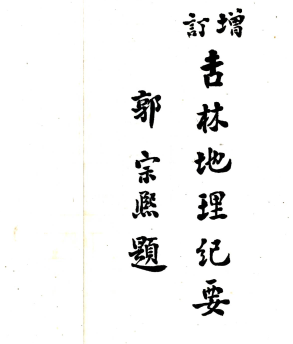 增訂
吉林地理紀要
郭宗熙題